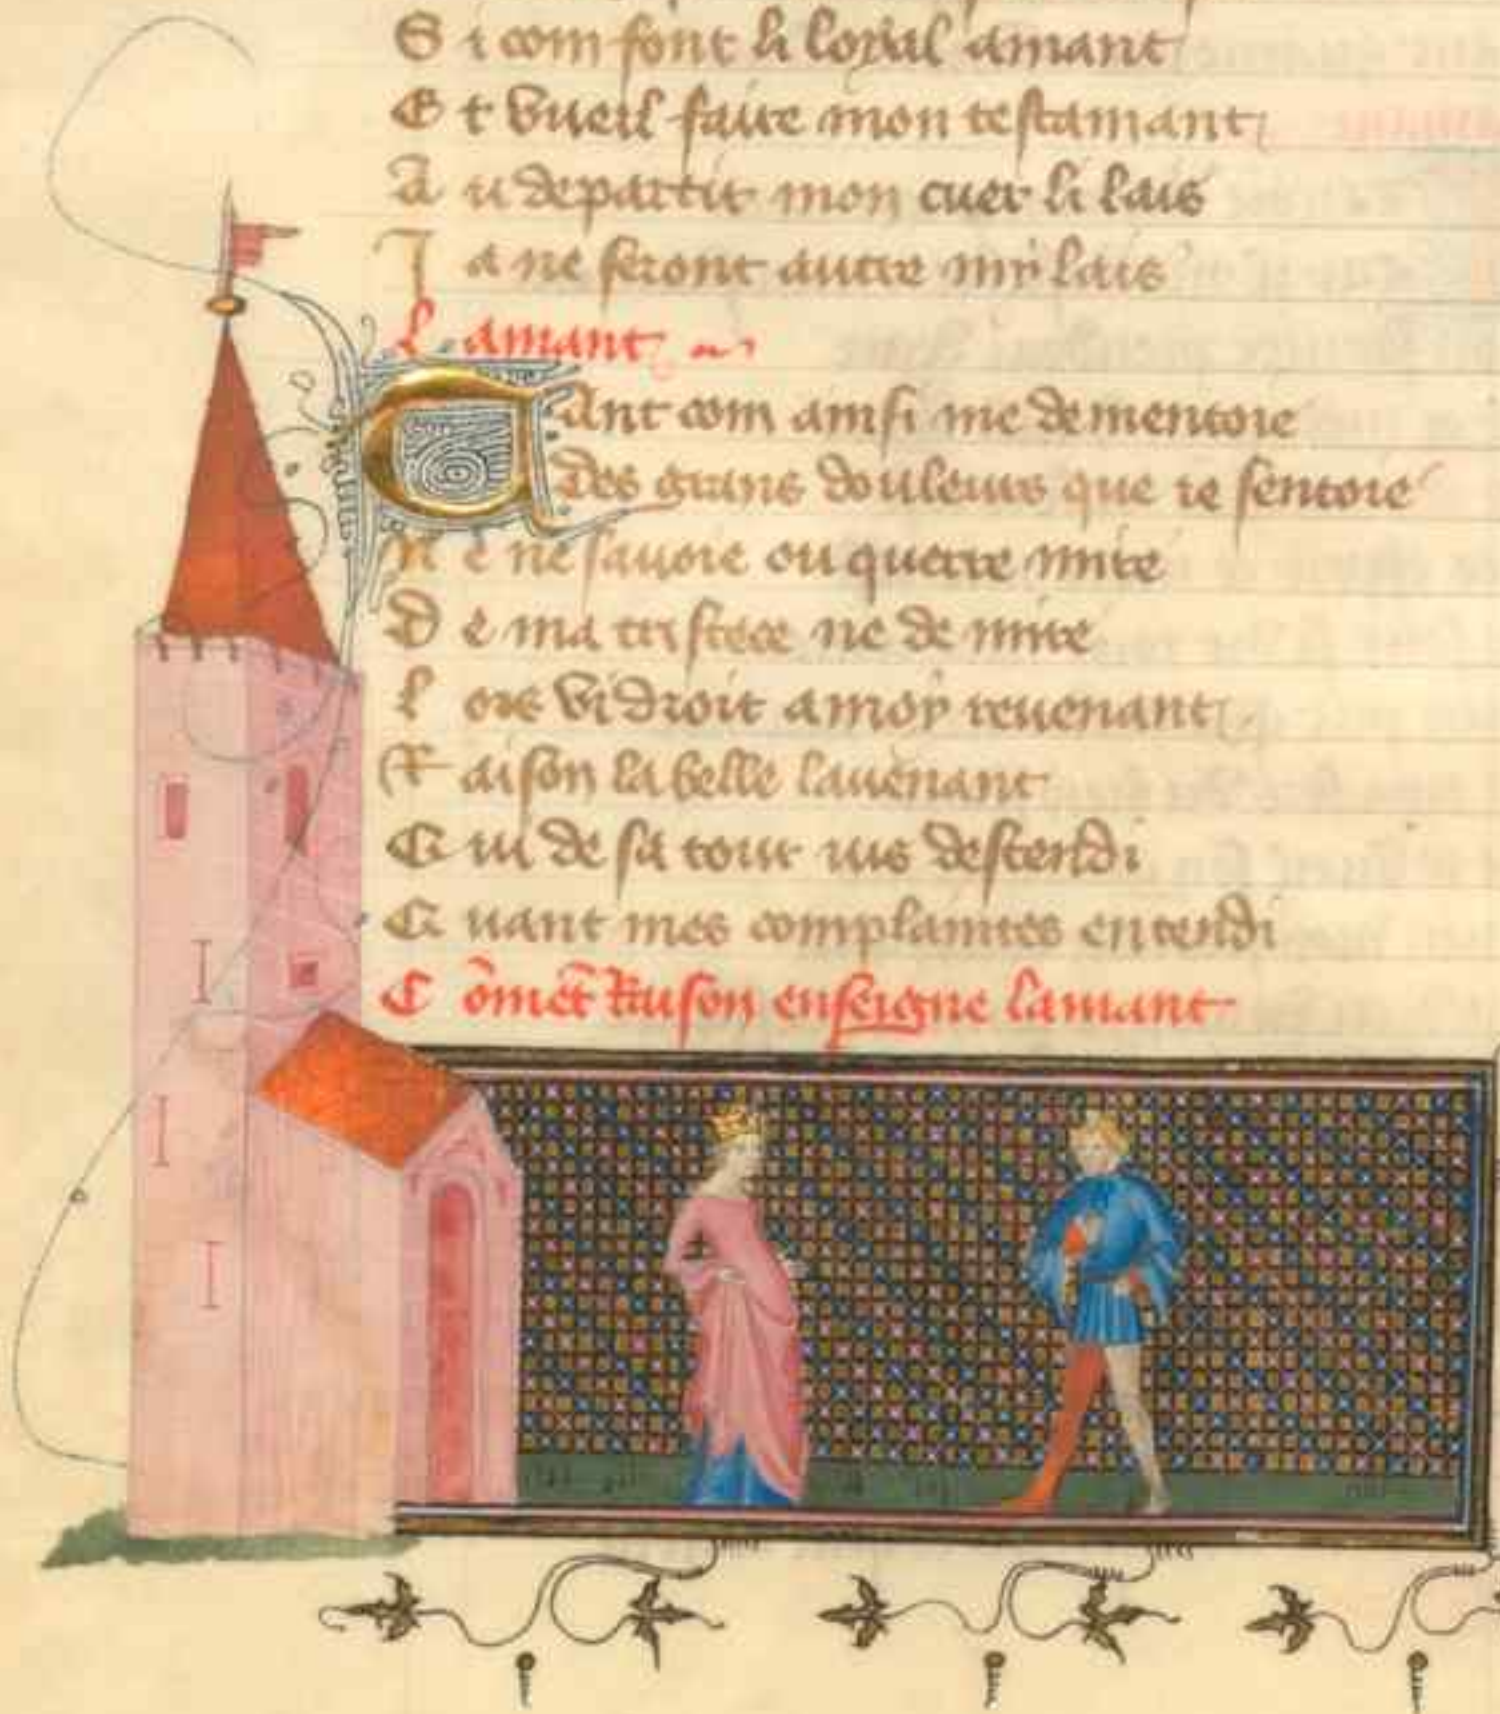 S i com font li loyal amant
E t vueil faire mon testamant
A u departir mon cuer li lais
J a ne seront autre my lais
L amant
T Ant com ainsi me dementoie
Des grans douleurs que ie sentoie
N e ne sauoie ou querre mire
D e ma tristece ne de mire
L ors vi droit a moy reuenant
R aison la belle lauenant
Q ui de sa tour ius descendi
Q uant mes complaintes entendi
C õmẽt Raison enseigne lamant